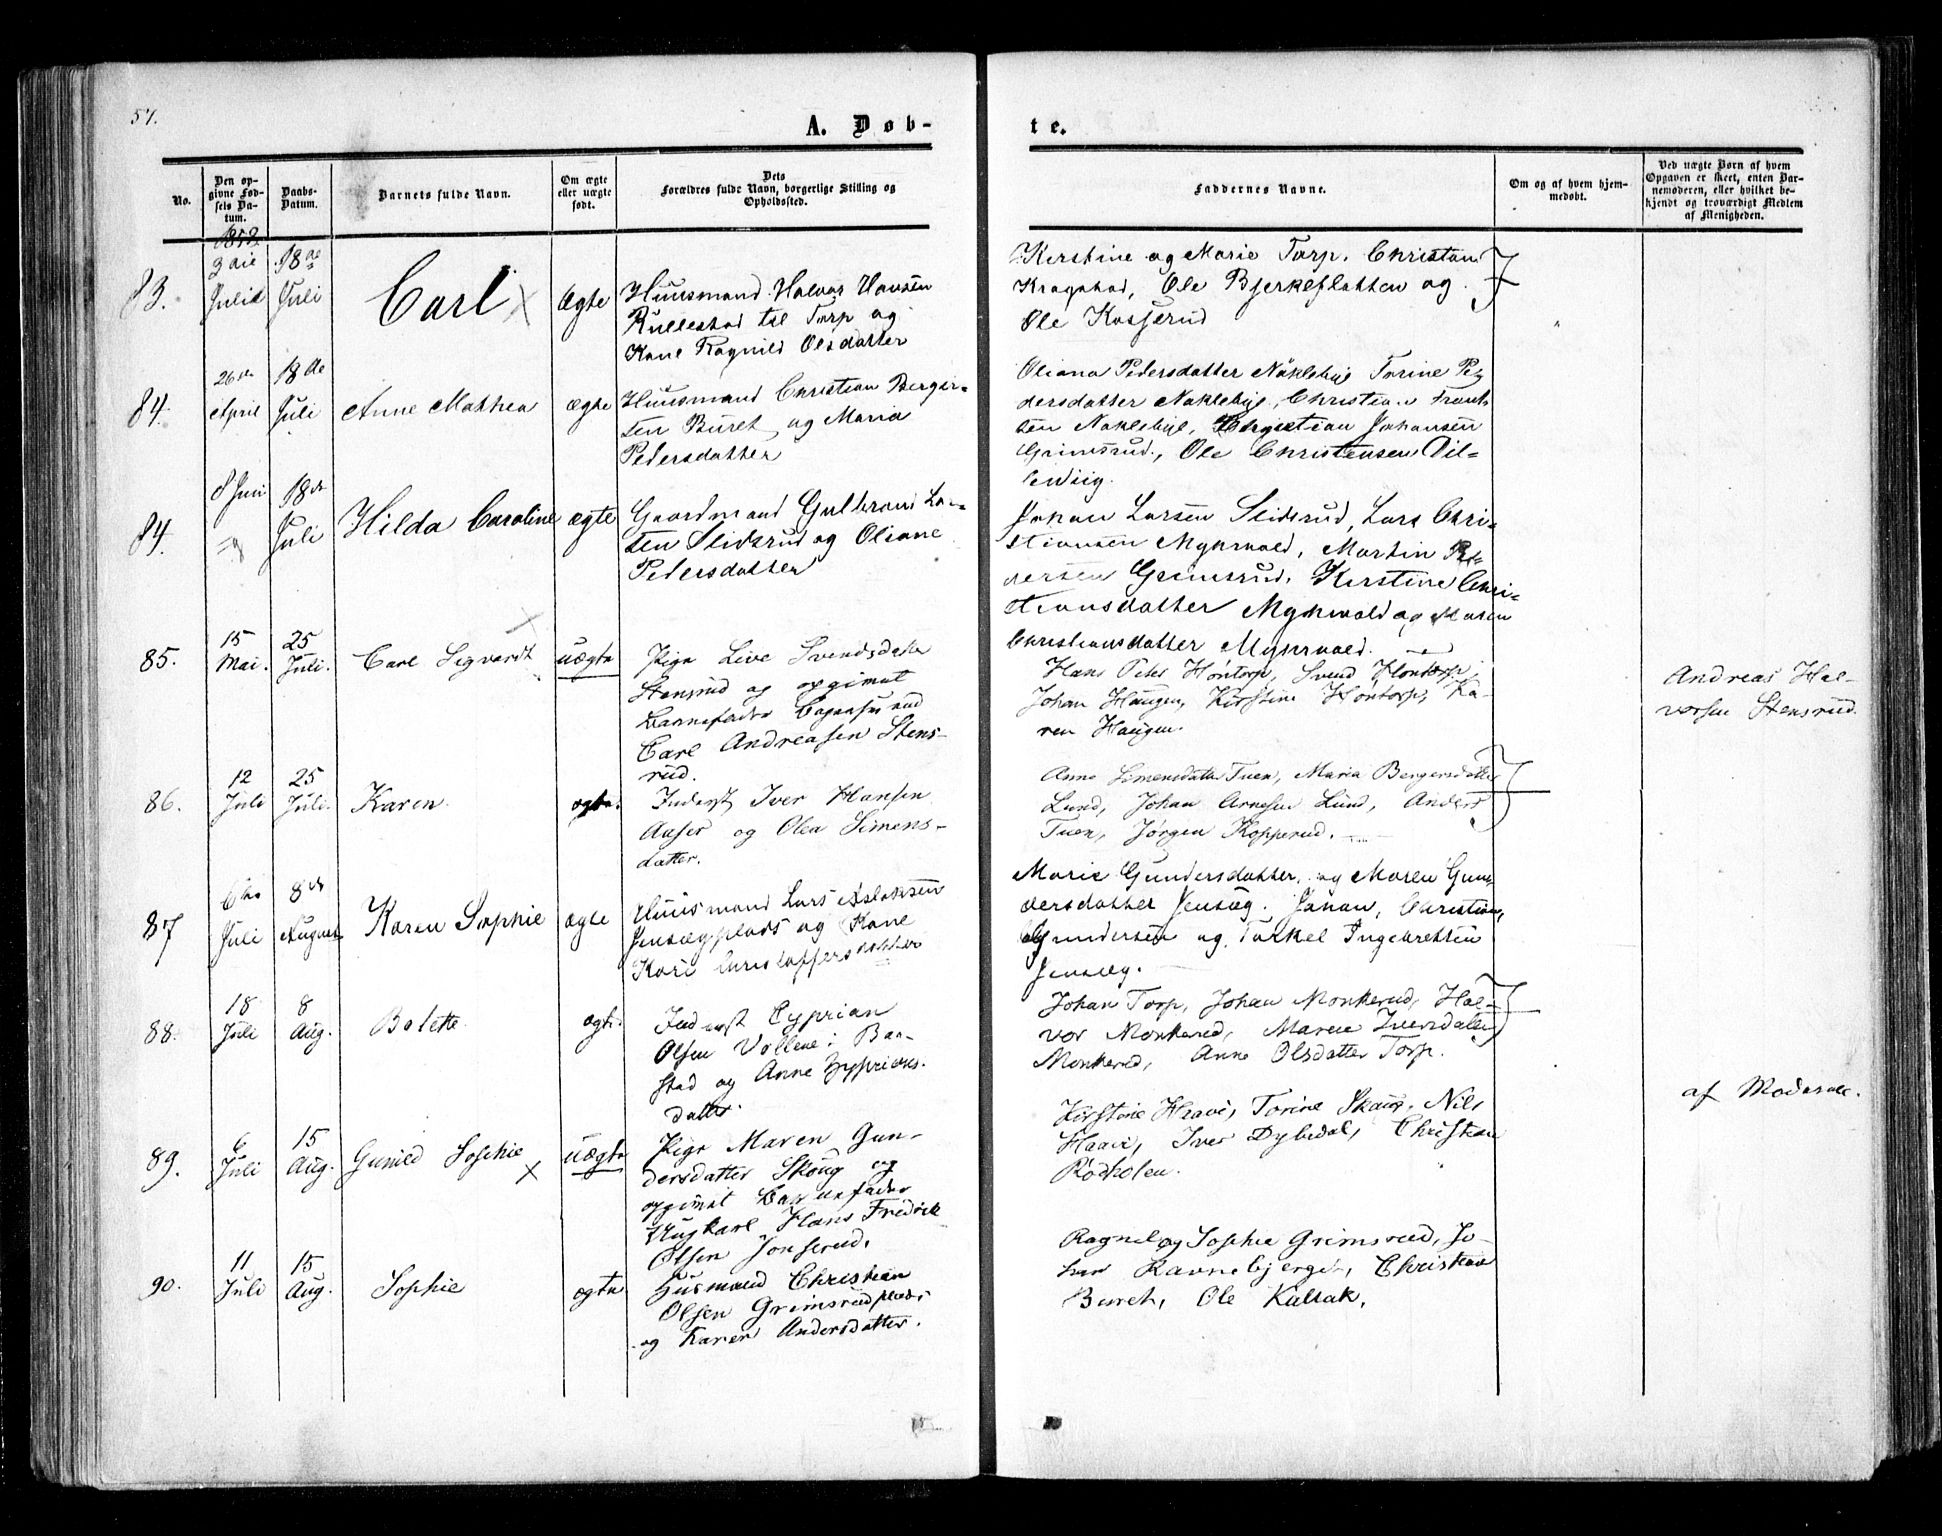 57.
A. Døb-
te.
No.
Den op-
givne Fød-
sels Da-
tum.
Daabs-
Datum.
Barnets fulde Navn.
Om ægte
eller uægte
født.
Dets
Forældres fulde Navn, borgerlige Stilling og
Opholdssted.
Faddernes Navne.
Om og af hvem hjem-
medøbt.
Ved uægte Børn af hvem
Opgaven er skeet, enten Bar-
nemoderen, eller hvilket be-
kjendt og troværdigt Medlem
af Menigheden.
83.
Juli
18de
Juli
Carl
ægte
Huusmand Halvor Hansen
Kullestad til Torp og
Kane Ragnild Olsdatter
Kirstine og Marie Torp. Christian
Kragstad, Ole Bjerkeflatten og
Ole Kosserud
84.
26de
April
18de
Juli
Anne Mathea
ægte
Huusmand Christian Berger-
sen Buret og Maria
Pedersdatter
Oliana Pedersdatter Nakleby Torine Pe
dersdatter Nakleby, Christian Frant
sen Naklebye, Christian Johansen
Grimsrud, Ole Christensen Dil-
84.
8 Juni
18de
Juli
Hilda Caroline
ægte
Gaardmand Gulbrand La-
sen Slidsrud og Oliane
Pedersdatter
Johan Larsen Slidsrud, Lars Chri-
stiansen Myhrvold, Martin Pe-
dersen Grimsrud, Kirstine Chri-
stiansdatter Myhrvold og Maren
Christiansdatter Myhrvold.
85.
15
Mai.
25
Juli.
Carl Sigvardt
uægte
Pige Live Svendsdatter
Stensrud og opgivet
Barnefader
Carl Andreasen Stens-
rud.
Hans Peter Hontorp, Svend Hontorp,
Johan Haugen, Kirstine Hontorp, Ka-
ren Haugen.
Andreas Hal-
vorsen Stensrud.
86.
12
Juli
25
Juli.
Karen
ægte.
Inderst Iver Hansen
Aaser og Olea Simens-
datter.
Anne Simensdatter Tuen, Maria Bergersdatter
Lund, Johan Arnesen Lund, Anders
Tuen, Jørgen Kopperud.
87
6te
Juli
8de
August
Karen Sophie
ægte
Huusmand Lars Aslaksen
Jensegplads og Kane
Kari Christoffersdatter
Marie Gundersdatter, og Maren Gun-
dersdatter Jenseg. Johan, Christian,
Gundersen og Torkel Ingebretsen
Jenseg.
88.
18
Juli
8
Aug.
Bolette
ægte.
Inderst Cyprian
Olsen Vollene i Baa-
stad og Anne Zyprians-
datter.
Johan Torp, Johan Monkerud, Hal-
vor Monkerud, Maren Iversdatter
Monkerud, Anne Olsdatter Torp.
89.
6
Juli
15
Aug.
Gunild Sophie
uægte
Pige Maren Gun-
dersdatter Skoug og
opgivet Barnefader
Ungkarl Hans Fredrik
Olsen Jonserud.
Kirstine Haavi, Torine Skaug. Nils
Haavi, Iver Dybedal, Christian
Rødholen.
af Moderen.
90.
11
Juli
15
Aug.
Sophie
ægte
Husmand Christian
Olsen Grimsrudplads
og Karen Andersdatter.
Ragnild og Sophie Grimsrud, Jo-
han Ravnebjerget, Christian
Buret, Ole Kallak.